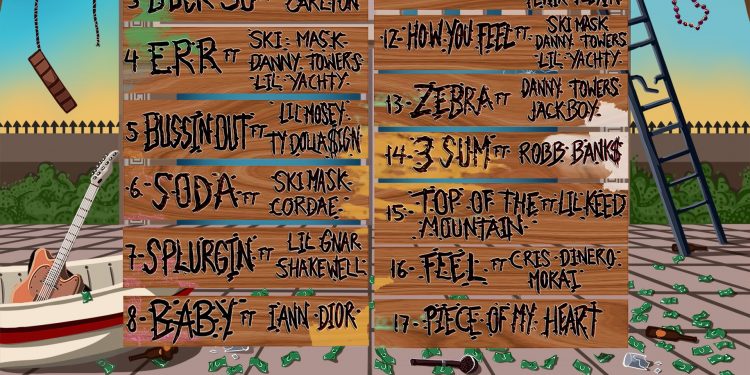 4 ERR FT
SKI MASK
DANNY TOWERS
LIL YACHTY
5 BUSSIN OUT FT
LIL MOSEY
TY DOLLA $IGN
6- SODA FT
SKI MASK
CORDAE
7- SPLURGIN FT
LIL GNAR
SHAKEWELL
8- BABY FT IANN DIOR
12- HOW YOU FEEL FT
SKI MASK
DANNY TOWERS
LIL YACHTY
13- ZEBRA FT
DANNY TOWERS
JACKBOY
14- 3 SUM FT ROBB BANK$
15- TOP OF THE MOUNTAIN FT LIL KEED
16- FEEL FT
CRIS DINERO
MOKAI
17- PIECE OF MY HEART